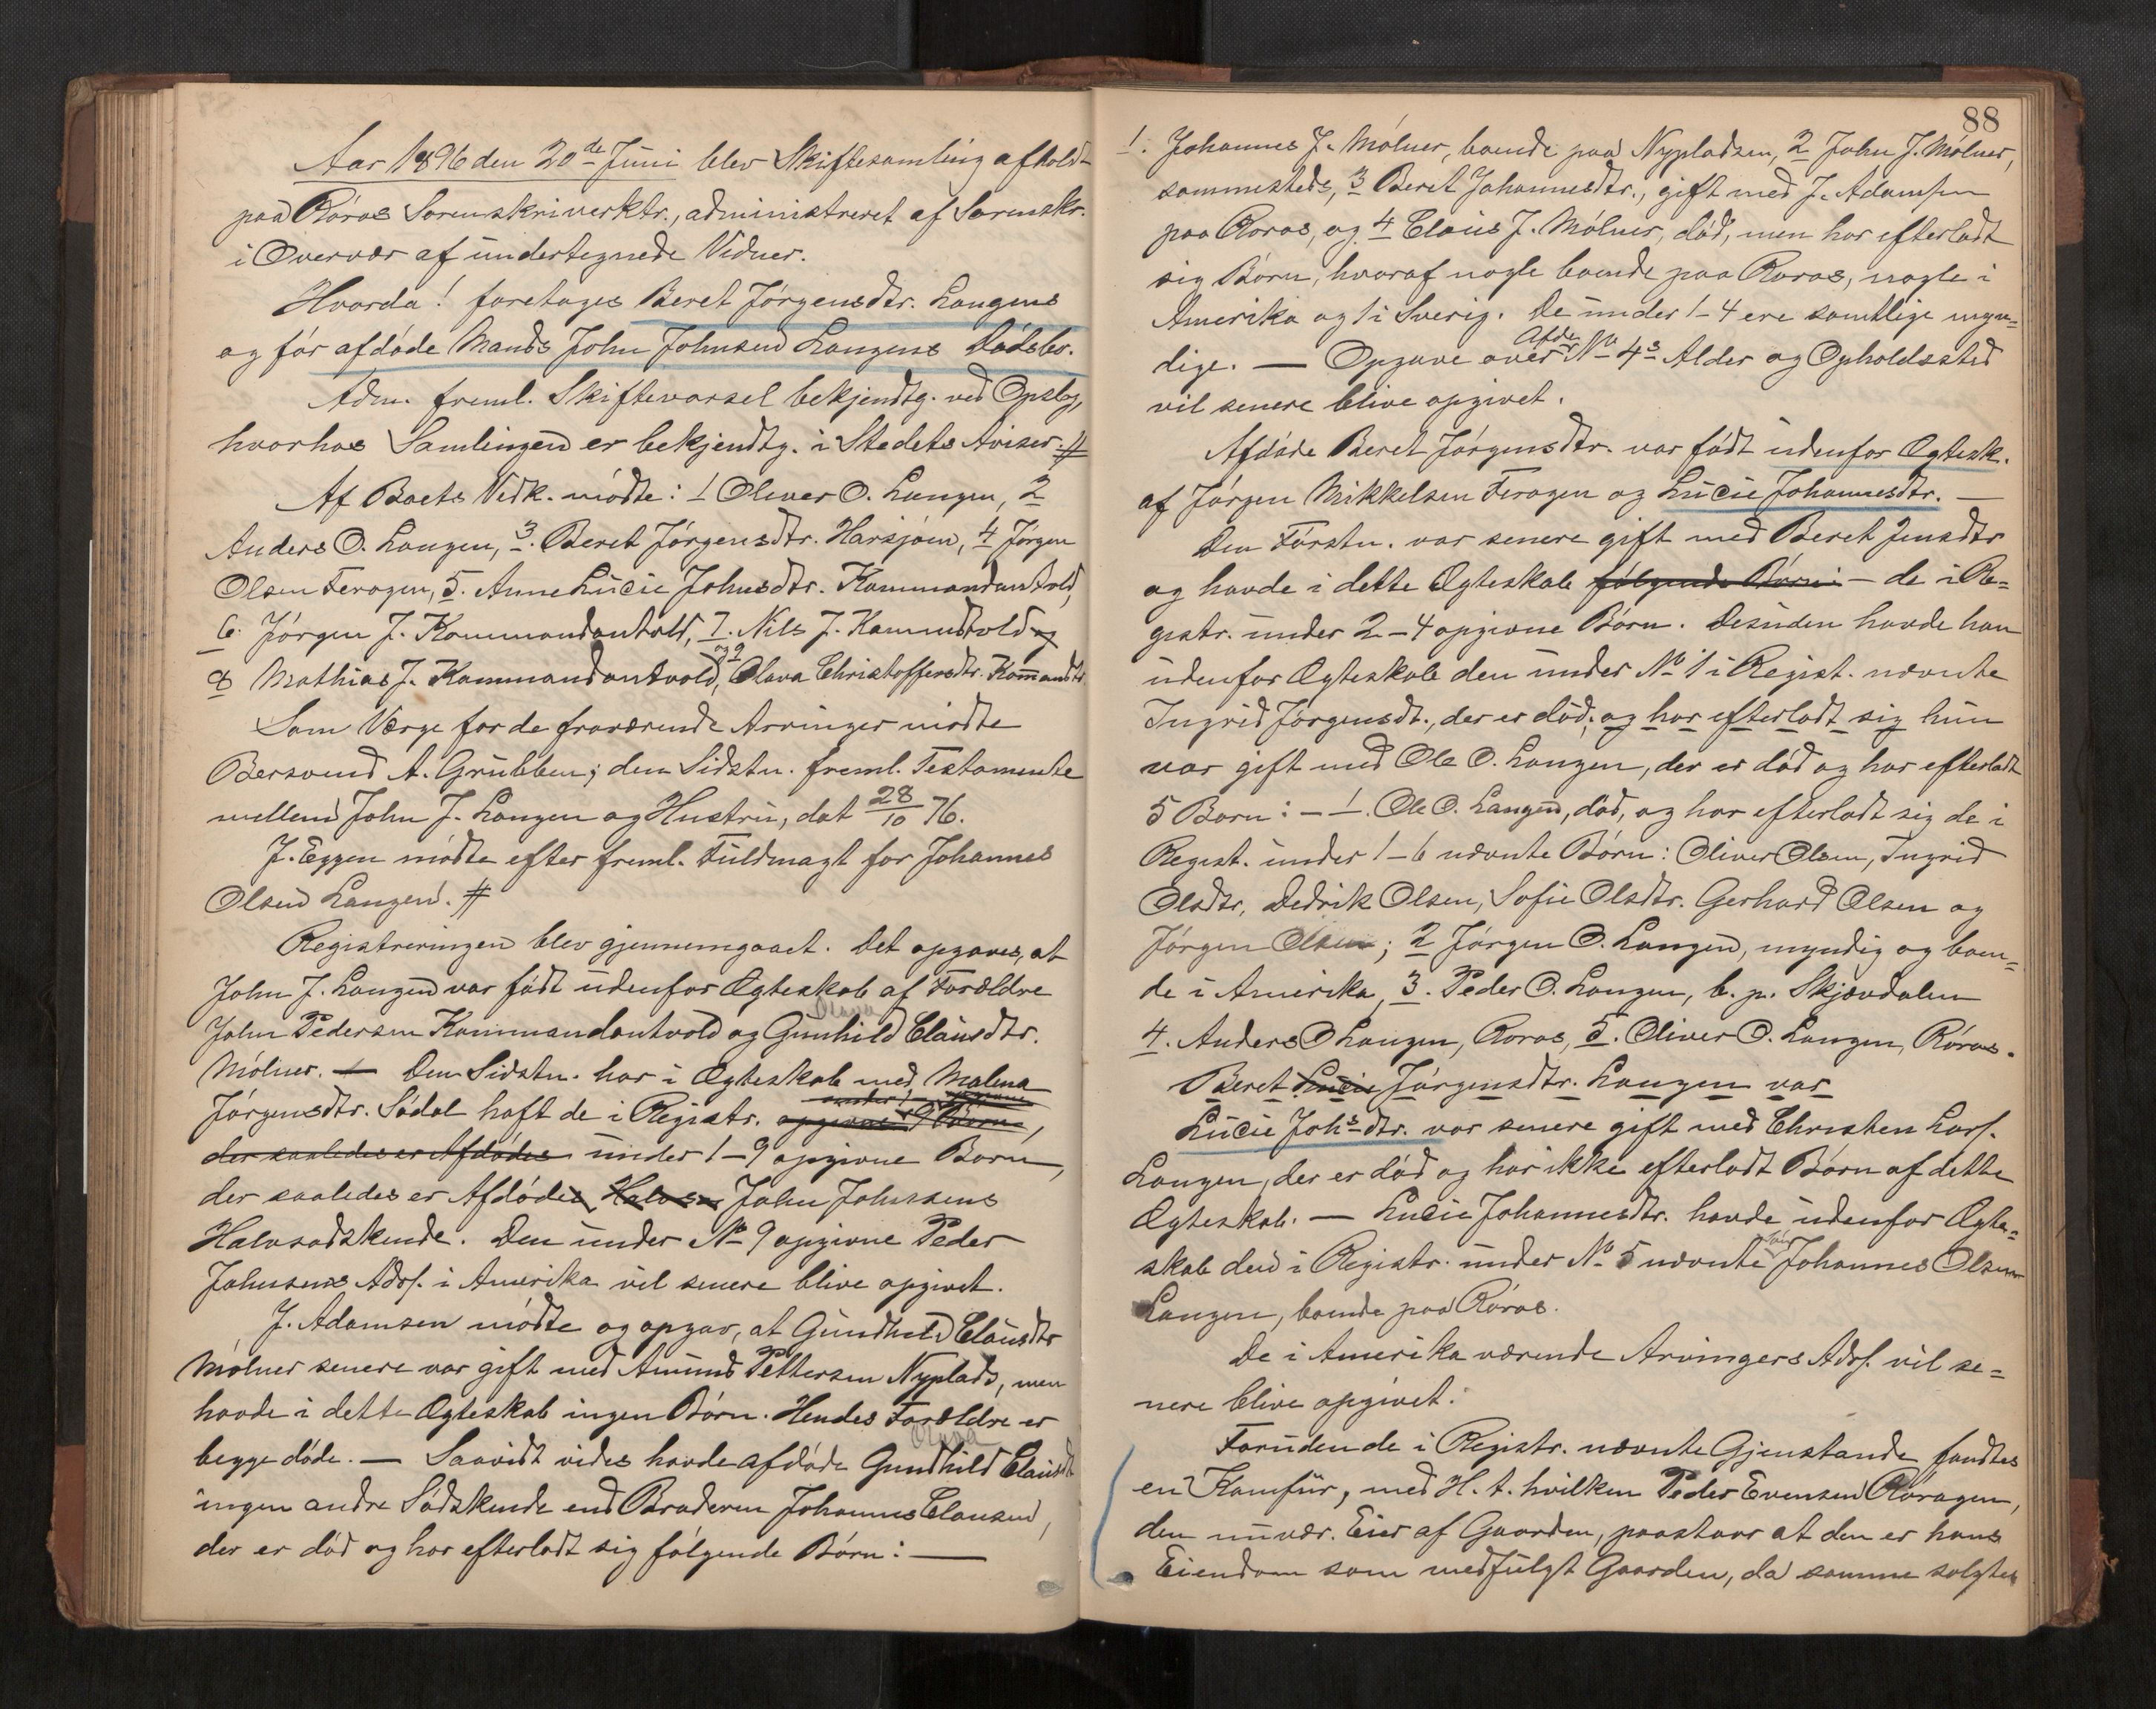 Aar 1896 den 20de Juni blev Skiftesamling afholdt
paa Røros Sorenskriverktr., administreret af Sorenskr.
i Overvær af undertegnede Vidner.
Hvorda! foretages Beret Jørgensdtr. Langens
og før afdøde Mands John Johnsen Langens Dødsbo.
Adm. freml. Skiftevarsel bekjendtg. ved Opslag,
hvorhos Samlingen er bekjendtg. i Stedets Aviser. #
Af Boets Vedk. mødte: 1 Oliver O. Langen, 2
Anders O. Langen, 3. Beret Jørgensdtr. Harsjøen, 4 Jørgen
Olsen Feragen, 5. Anne Lucie Johnsdtr. Kommandantvold,
6. Jørgen J. Kommandantvold, 7. Nils J. Kommdtvold og
8 Mathias J. Kommandantvold, og 9 Olava Christoffersdtr. Kommandtv.
Som Værge for de fraværende Arvinger mødte
Bersvend A. Grubben; den Sidstn. freml. Testamente
mellem John J. Langen og Hustru, dat 28/10 76.
J. Eggen mødte efter freml. Fuldmagt for Johannes
Olsen Langen. #
Registreringen blev gjennemgaaet. Det opgaves, at
John J. Langen var født udenfor Ægteskab af Forældre
Olava
John Pedersen Kommandantvold og Gunhild Clausdtr.
Mølner. — Den Sidstn. har i Ægteskab med Malena
Jørgensdtr. Sødal haft de i Registr. opgivne 9 Børn,
der saaledes er Afdødes under 1-9 opgivne Børn,
der saaledes er Afdødes Halvsø John Johnsens
Halvsødskende. Den under No 9 opgivne Peder
Johnsens Adrs. i Amerika vil senere blive opgivet.
J. Adamsen mødte og opgav, at Gundhild Clausdtr
Mølner senere var gift med Amund Pettersen Nyplads, men
havde i dette Ægteskab ingen Børn. Hendes Forældre er
Olava
begge døde. — Saavidt vides havde afdøde Gundhild Clausdt
ingen andre Sødskende end Broderen Johannes Clausen,
der er død og har efterladt sig følgende Børn: —
88
1. Johannes J. Mølner, boende paa Nypladsen, 2 John J. Mølner,
sammesteds, 3 Beret Johannesdtr., gift med J. Adamsen
paa Røros, og 4 Claus J. Mølner, død, men har efterladt
sig Børn, hvoraf nogle boende paa Røros, nogle i
Amerika og 1 i Sverig. De under 1-4 ere samtlige myn=
dige. — Opgave over No 4s Alder og Opholdssted
vil senere blive opgivet.
Afdøde Beret Jørgensdtr. var født udenfor Ægtesk.
af Jørgen Mikkelsen Feragen og Lucie Johannesdtr. —
Den Førstn. var senere gift med Beret Jensdtr
og havde i dette Ægteskab følgende Børn: — de i Re=
gistr. under 2-4 opgivne Børn. Desuden havde han
udenfor Ægteskab den under No 1 i Regist. nævnte
Ingrid Jørgensdt., der er død; og har efterladt sig hun
var gift med Ole O. Langen, der er død og har efterladt
5 Børn: — 1. Ole O. Langen, død, og har efterladt sig de i
Regist. under 1-6 nævnte Børn: Oliver Olsen, Ingrid
Olsdtr, Dedrik Olsen, Sofie Olsdtr. Gerhard Olsen og
Jørgen Olsen; 2 Jørgen O. Langen, myndig og boen=
de i Amerika, 3. Peder O. Langen, b. p. Skjævdalen
4. Anders O Langen, Røros, 5. Oliver O. Langen, Røros.
Beret Lucie Jørgensdtr. Langen var
Lucie Johs dtr. var senere gift med Christen Lars.
Langen, der er død og har ikke efterladt Børn af dette
Ægteskab. — Lucie Johannesdtr. havde udenfor Ægte=
skab den i Registr. under No 5 nævnte Johannes Olsen
Langen, boende paa Røros.
De i Amerika værende Arvingers Adrs. vil se=
nere blive opgivet.
Foruden de i Registr. nævnte Gjenstande fandtes
en Komfur, med H. t. hvilken Peder Evensen Røragen,
den nuvær. Eier af Gaarden, paastaar at den er hans
Eiendom som medfulgt Gaarden, da samme solgtes